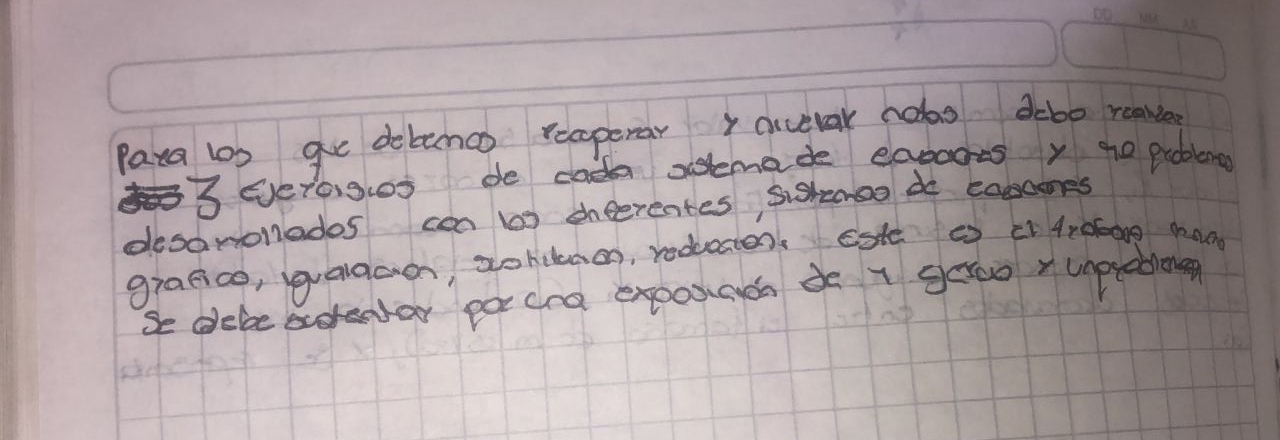 DD MM AA
Para los que debemos recuperar y nivelar notas debo realizar
3 Ejercicios de cada sistema de ecuaciones y 10 problemas
desarrollados con los diferentes, sistemas de ecuaciones
grafico, igualacion, sustitucion, reduccion. Este es el trabajo
se debe sustentar por una exposición de 1 y un problema